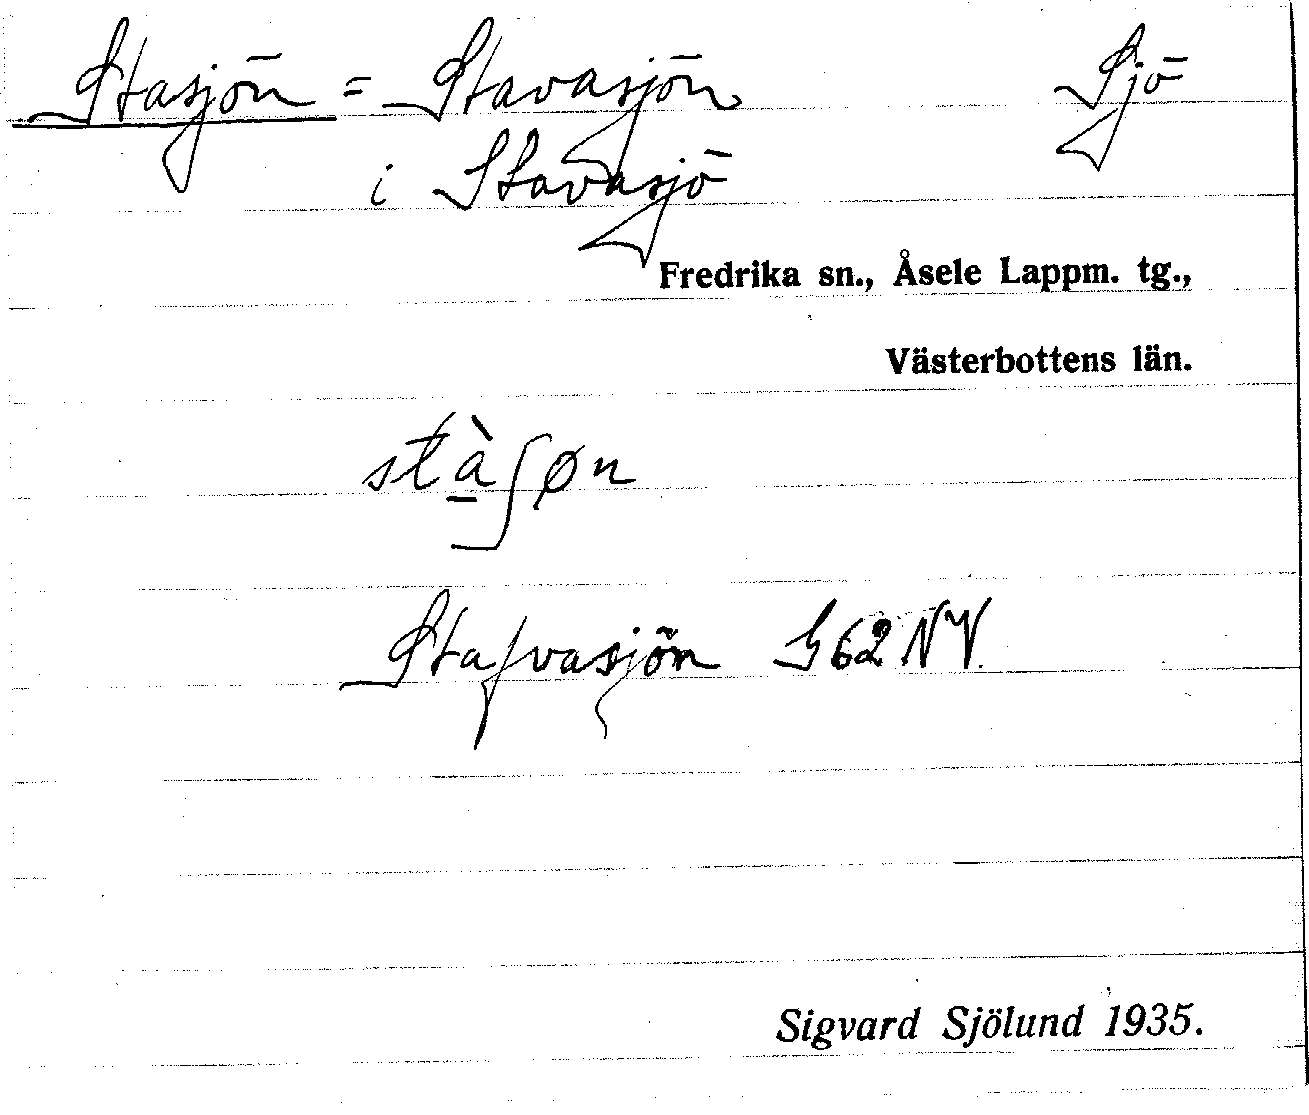 Stasjön = Stavasjön Sjö
i Stavasjö
Fredrika sn., Åsele Lappm. tg.,
Västerbottens län.
stà̠ʃøn
Stafvasjön G62 NV.
Sigvard Sjölund 1935.